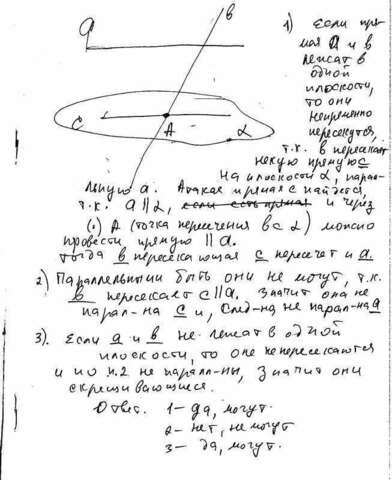 a
в
с
А
α
1) Если пря-
мая a и в
лежат в
одной
плоскости,
то они
непременно
пересекутся,
т.к. в пересекает
некую прямую с
на плоскости α, парал-
льную a. А такая прямая с найдется,
т.к. a ∥ α, если есть прямая и через
(·) А (точка пересечения в с α) можно
провести прямую ∥ a.
тогда в пересекающая с пересечет и a.
2) Параллельными быть они не могут, т.к.
в пересекает с ∥ a. Значит она не
парал-на с и, след-но не парал-на a
3). Если a и в не лежат в одной
плоскости, то они не пересекаются
и по п.2 не паралл-ны, значит они
скрещивающиеся.
Ответ. 1 – да, могут.
2 – нет, не могут
3 – да, могут.